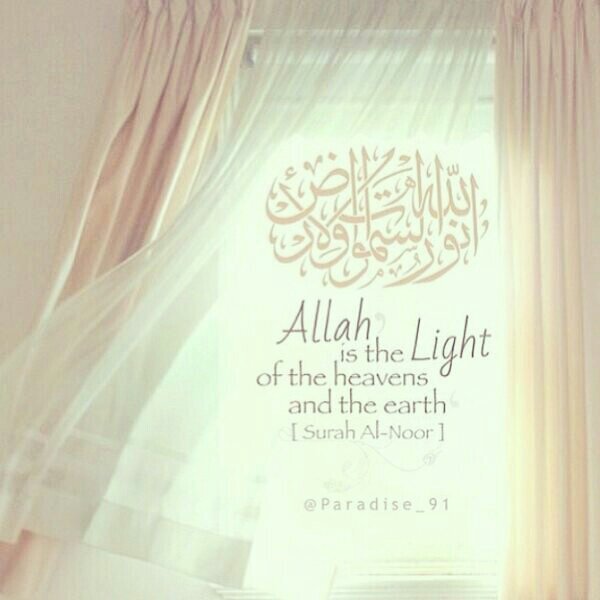 الله نور السموات والأرض
Allah
is the Light
of the heavens
and the earth
[ Surah Al-Noor ]
@Paradise_91